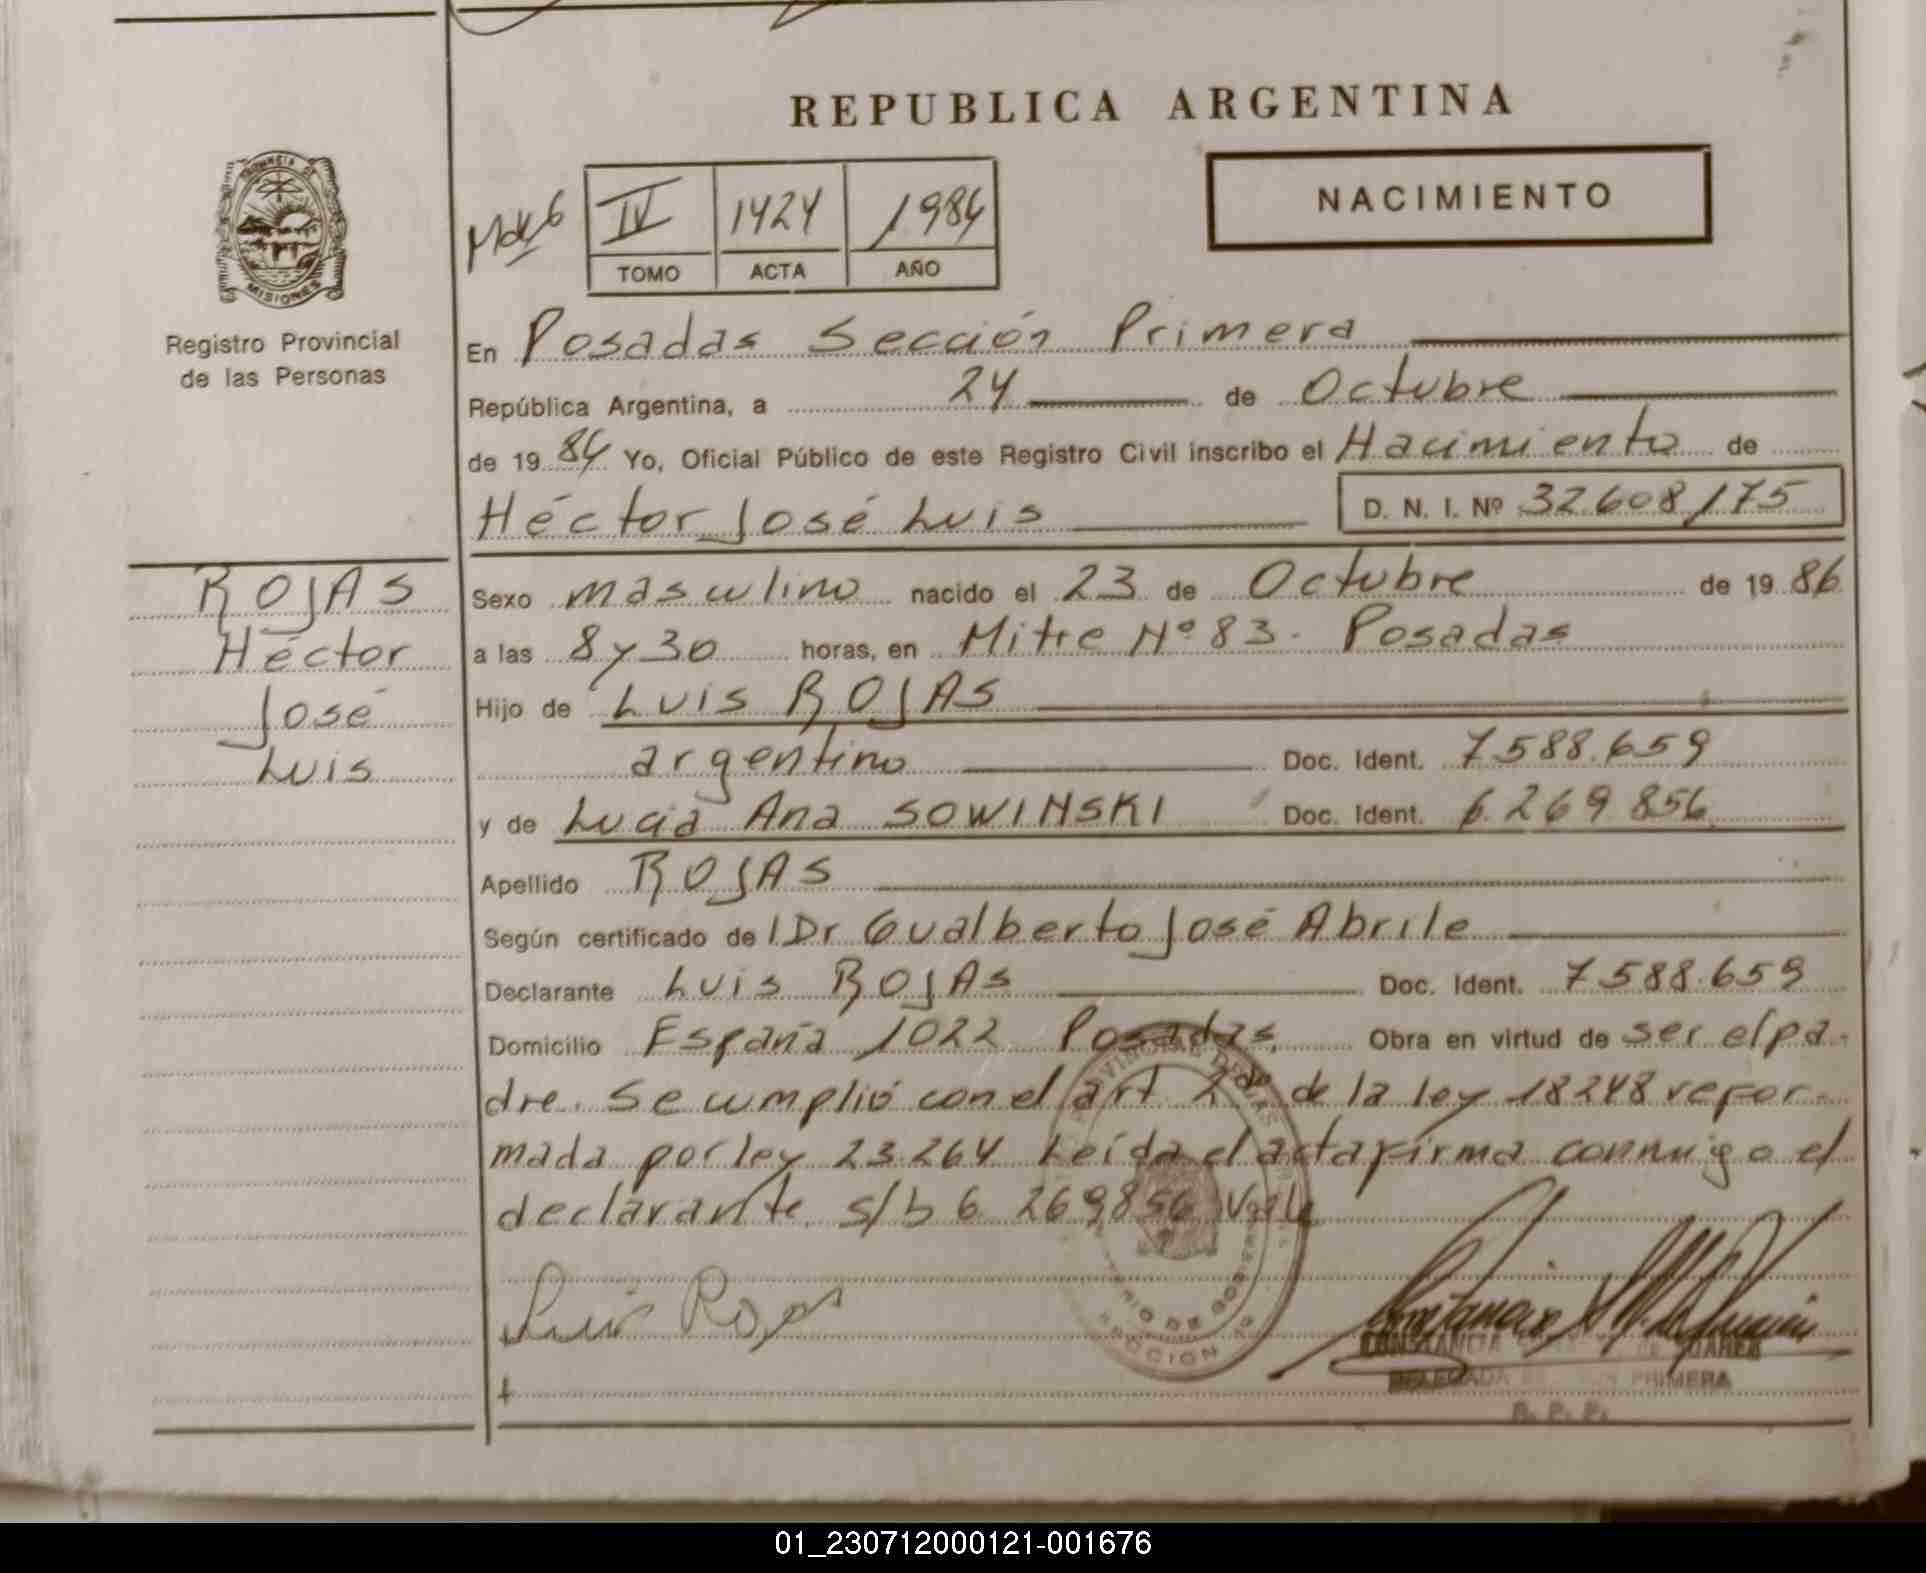 REPUBLICA ARGENTINA
NACIMIENTO
IV 1424 1986
TOMO ACTA AÑO
PROVINCIA DE
MISIONES
Registro Provincial
de las Personas
En Posadas Sección Primera
República Argentina, a 24 de Octubre
de 19 86 Yo, Oficial Público de este Registro Civil inscribo el Nacimiento de
Héctor José Luis D. N. I. Nº 32.608,175
ROJAS
Héctor
José
Luis
Sexo masculino nacido el 23 de Octubre de 19 86
a las 8 y 30 horas, en Mitre Nº 83. Posadas
Hijo de Luis ROJAS
argentino Doc. Ident. 7.588.659
y de Lucia Ana SOWINSKI Doc. Ident. 6.269.856
Apellido ROJAS
Según certificado de l Dr Gualberto José Abrile
Declarante Luis ROJAS Doc. Ident. 7.588.659
Domicilio España 1022 Posadas, Obra en virtud de ser el pa-
dre. Se cumplió con el art. 2do de la ley 18248 refor-
mada por ley 23.264 Leída el acta firma conmigo el
declarante. s/b 6. 269856 Vale
Luis Rojas
CONSTANCIA DE SUAREZ
DELEGADA SECCION PRIMERA
R. P. P.
01_230712000121-001676